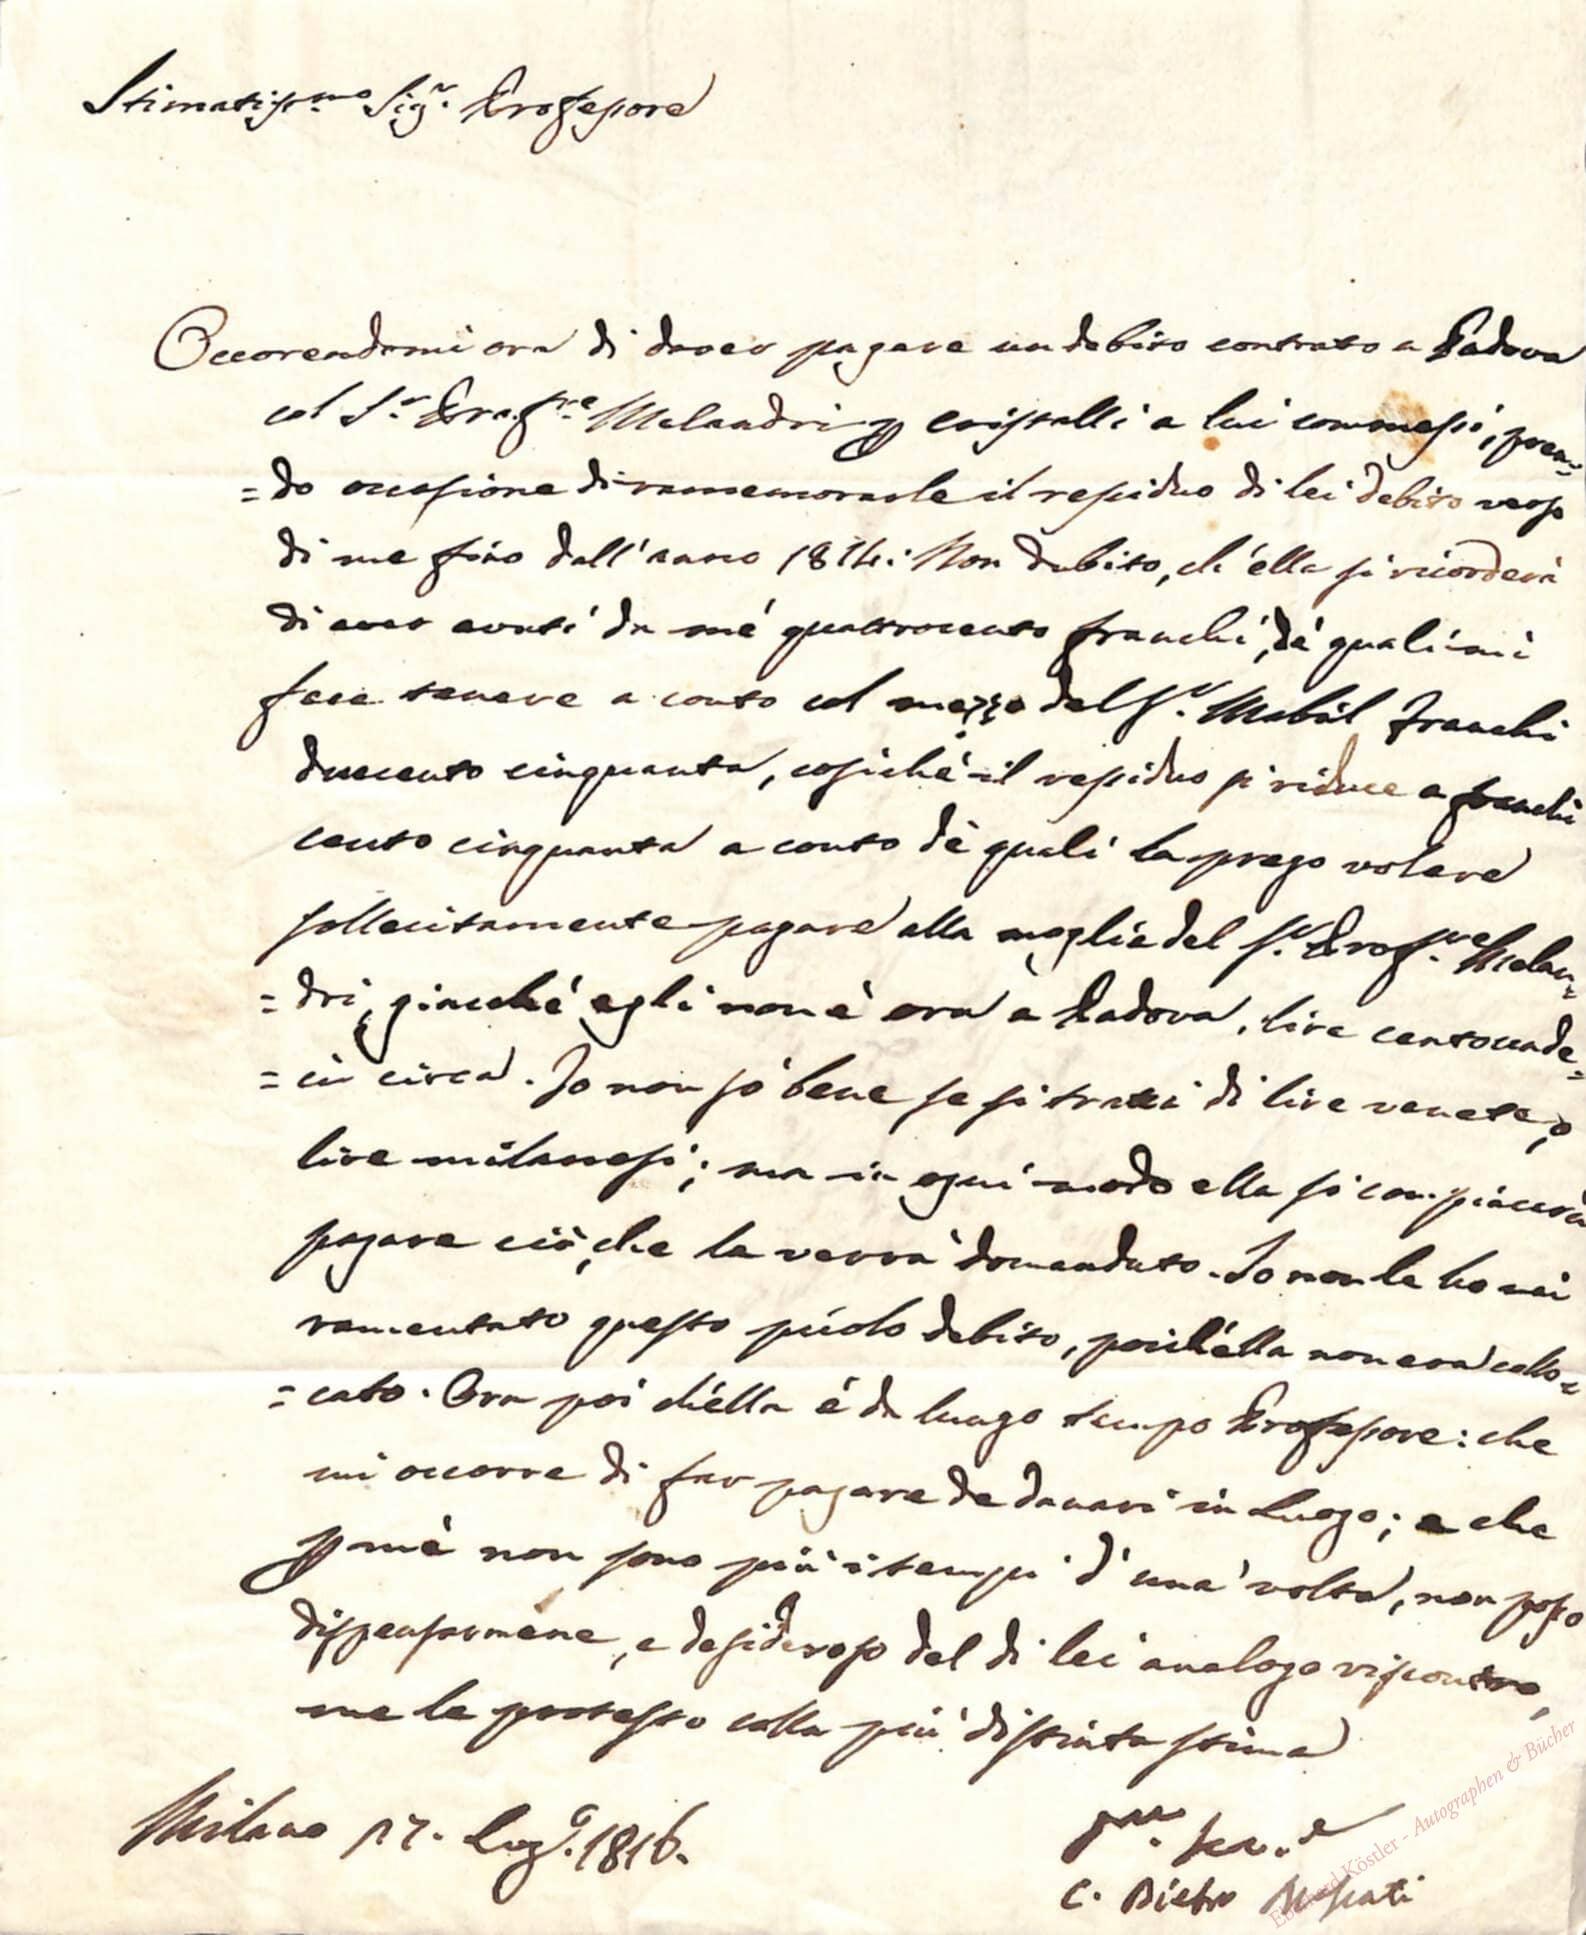 Stimatiss.mo Sig.r Professore
Occorendomi ora di dover pagare un debito contrato a Padova
col S.r Prof.re Melandri p cristalli a lui commessi, pren-
=do occasione di rammemorarle il residuo di lei debito verso
di me fino dall'anno 1814. Non dubito, ch'ella si ricorderà
di aver avuti da mé quattrocento franchi, dé quali mi
fece tenere a conto col mezzo del S.r Mabil franchi
duecento cinquanta, cosiché il residuo si riduce a franchi
cento cinquanta a conto dè quali la prego volere
sollecitamente pagare alla moglie del S.r Prof.re Melan=
=dri, giacché egli non è ora a Padova, lire centounde=
=ci circa. Io non sò bene se si tratti di lire venete, o
lire milanesi; ma in ogni modo ella si compiacerà
pagare ciò, che le verrà domandato. Io non le ho mai
ramentato questo picolo debito, poich'élla non era collo=
=cato. Ora poi ch'élla é da lungo tempo Professore: che
mi occorre di far pagare de danari in Luogo; e che
p mé non sono più i tempi d'una volta, non posso
dispensarmene, e desideroso del di lei analogo riscontro,
me le protesto colla più distinta stima
Milano 17. Lug.o 1816.
C. Pietro Moscati
Eberhard Köstler - Autographen & Bücher